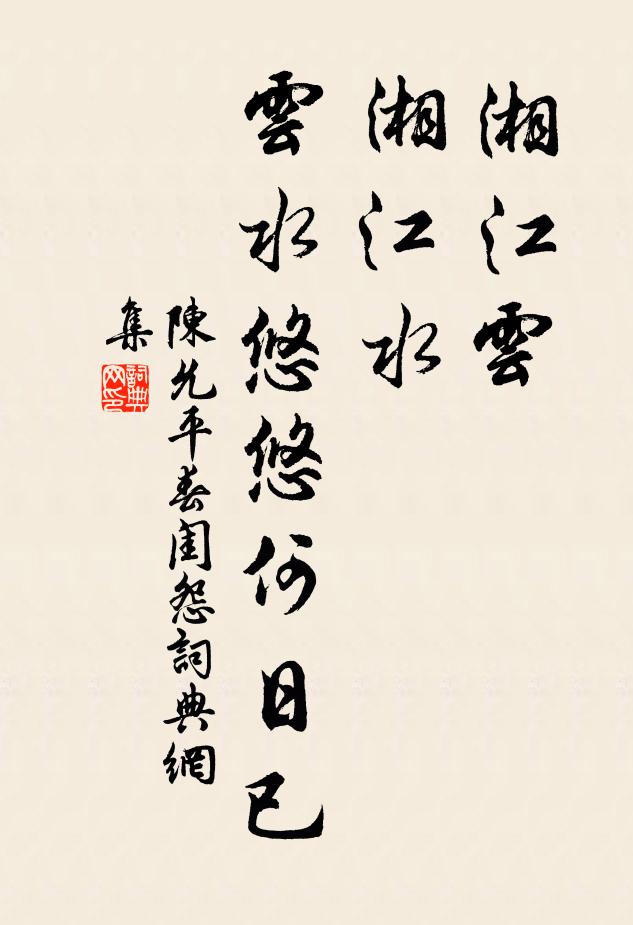 湘江雲
湘江水
雲水悠悠何日已
陳允平春閨怨詞典網
集
詞典
网印